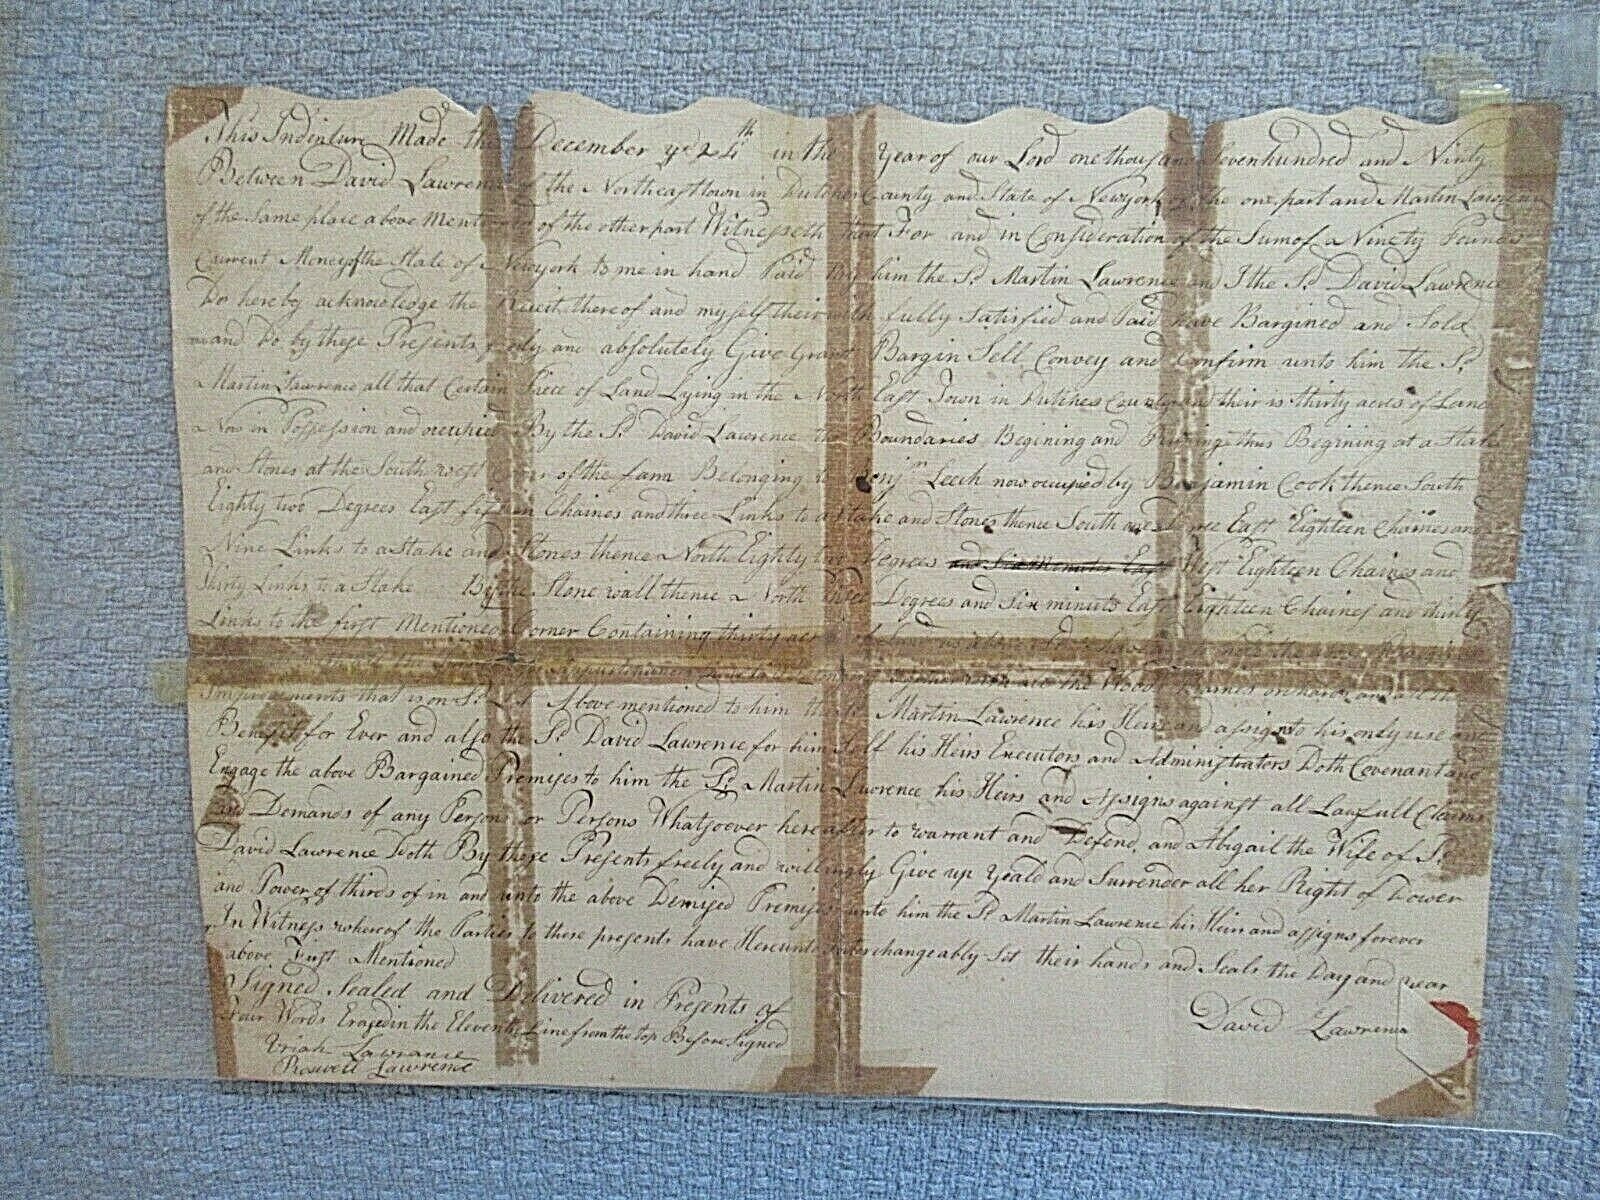 This Indinture Made the December ye 24th in the Year of our Lord one thousand Sevenhundred and Ninty
Between David Lawrence of the Northeasttown in Dutches County and State of Newyork of the one part and Martin Lawrence
of the Same place above Mentioned of the other part Witnesseth that For and in Consideration of the Sum of Ninety Pounds
Current Money of the State of Newyork to me in hand Paid by him the Sd Martin Lawrence and I the Sd David Lawrence
Do hereby acknowledge the Reciet there of and my self theirwith fully Satisfied and Paid have Bargined and Sold
and Do by these Presents freely and absolutely Give Grant Bargin Sell Convey and Confirm unto him the Sd
Martin Lawrence all that Certain Piece of Land Lying in the North East Town in Dutches County and their is thirty acres of Land
Now in Possession and occupied By the Sd David Lawrence the Boundaries Begining and Runing thus Begining at a Stake
and Stones at the South west Corner of the farm Belonging to Benjmn Leech now occupied by Benjamin Cook thence South
Eighty two Degrees East fifteen Chaines and three Links to a Stake and Stones thence South Degree East Eighteen Chaines and
Nine Links to a Stake and Stones thence North Eighty two Degrees and Six Minuts East West Eighteen Chaines and
Thirty Links to a Stake By the Stone wall thence North three Degrees and Six minuts East Eighteen Chaines and thirty
Links to the first Mentioned Corner Containing thirty acres of Land as above Sd to the
the Wood orchard and all the
Improvements that is on Sd Lot Above mentioned to him the Sd Martin Lawrence his Heirs and assigns to his only use and
Benefit for Ever and also the Sd David Lawrence for him Self his Heirs Executors and Administrators Doth Covenant and
Engage the above Bargained Premises to him the Sd Martin Lawrence his Heirs and Assigns against all Lawfull Claims
and Demands of any Person or Persons Whatsoever hereafter to warrant and Defend, and Abigail the Wife of Sd
David Lawrence Doth By these Presents freely and willingly Give up Yeald and Surrender all her Right of Dower
and Power of thirds of in and unto the above Demised Premises unto him the Sd Martin Lawrence his Heirs and assigns forever
In Witness whereof the Parties to these presents have Hereunto interchangeably Set their hands and Seals the Day and year
above First Mentioned
Signed Sealed and Delivered in Presents of
David Lawrence
Four Words Erased in the Eleventh Line from the top Before Signed
Uriah Lawrance
Roswell Lawrence